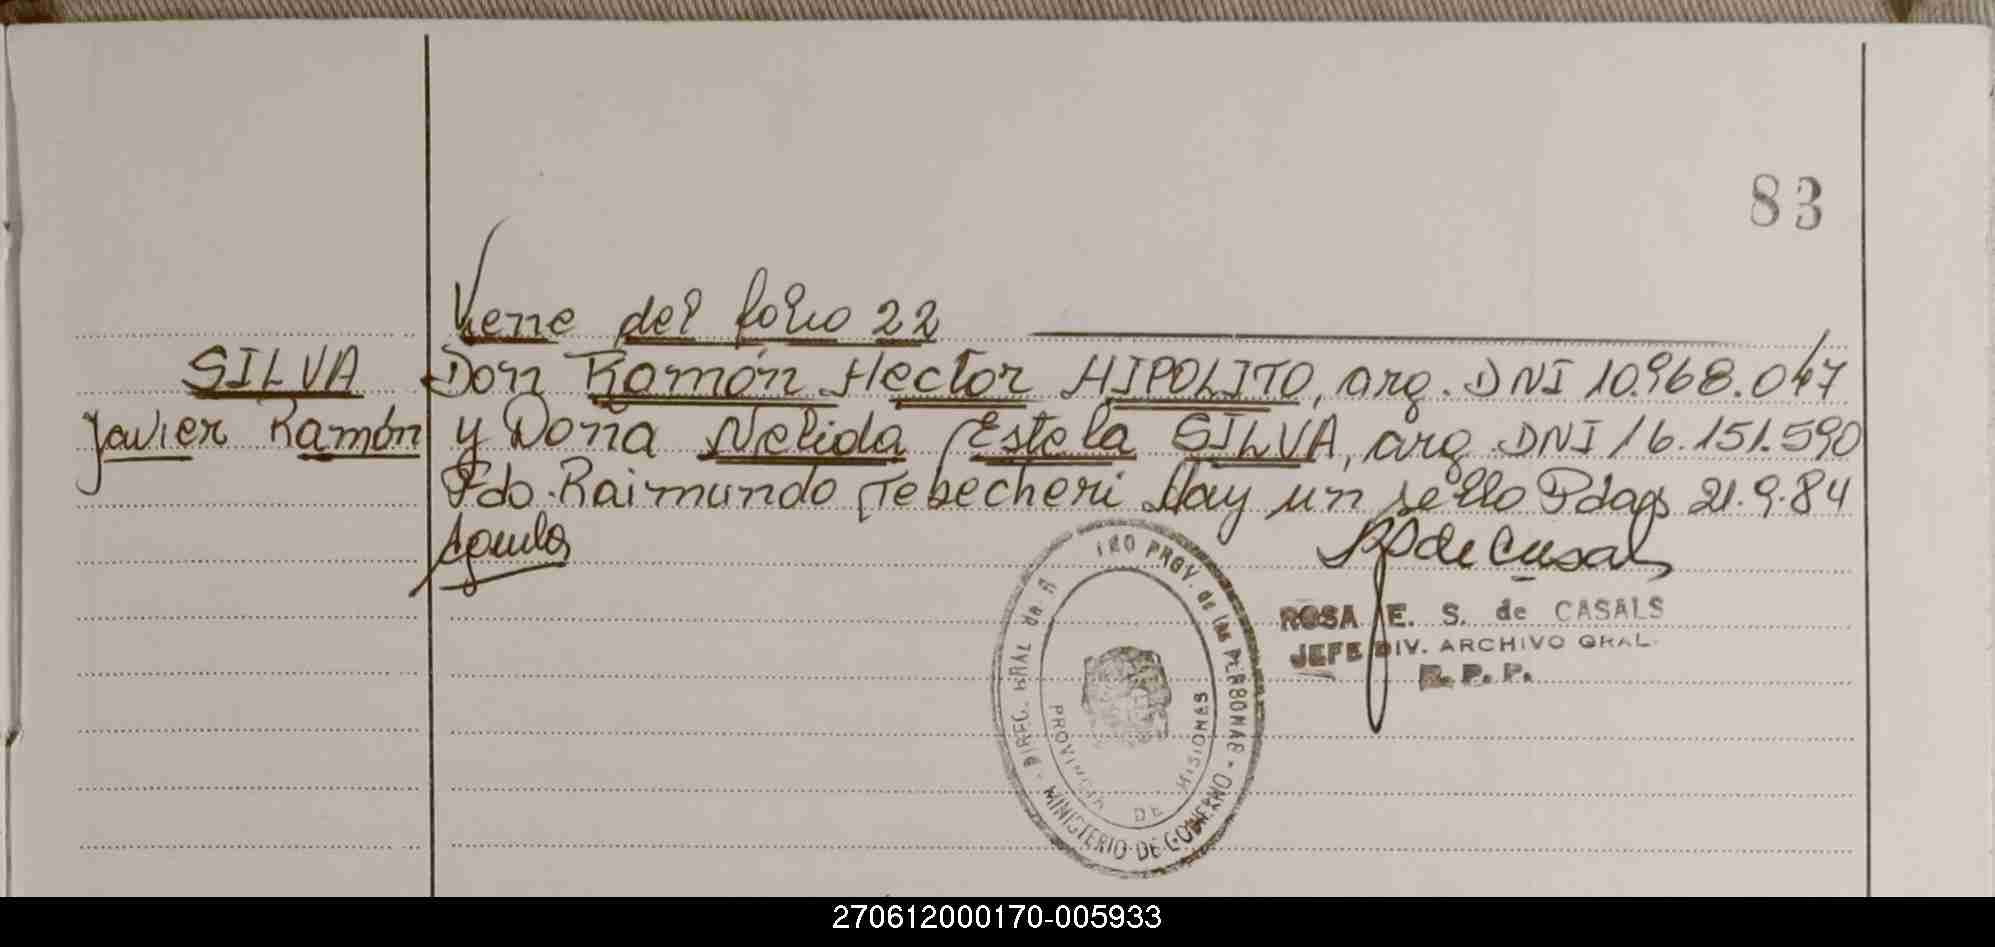 83
Viene del folio 22
SILVA Don Ramón Hector HIPOLITO, arg. DNI 10.968.047
Javier Ramón y Doña Nelida Estela SILVA, arg. DNI 16.151.590
Fdo. Raimundo Tebecheri Hay un sello Pdas 21.9.84
ROSA E. S. de CASALS
JEFE DIV. ARCHIVO GRAL.
R. P. P.
PROV. de las PERSONAS
MINISTERIO DE GOBIERNO
PROVINCIA DE MISIONES
270612000170-005933